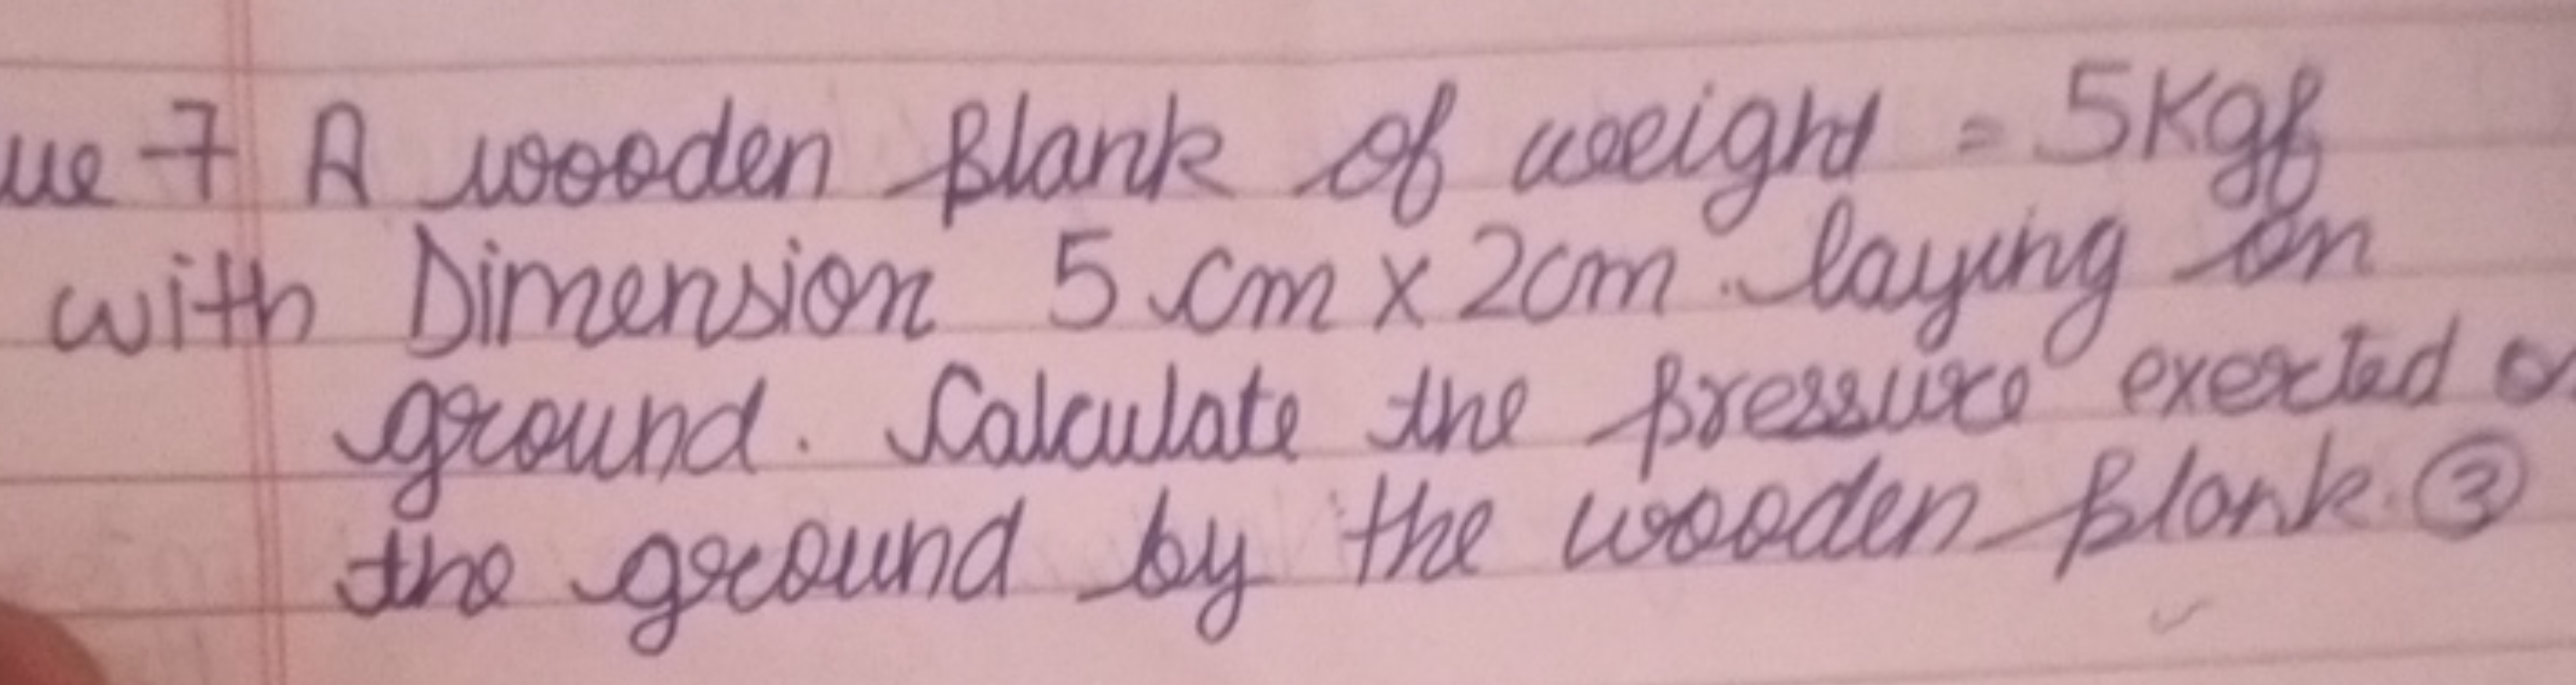 ue 7 A wooden plank of weight = 5Kgf
with Dimension 5 cm x 2cm. laying on
ground. Calculate the pressure exerted o
the ground by the wooden plank. 3